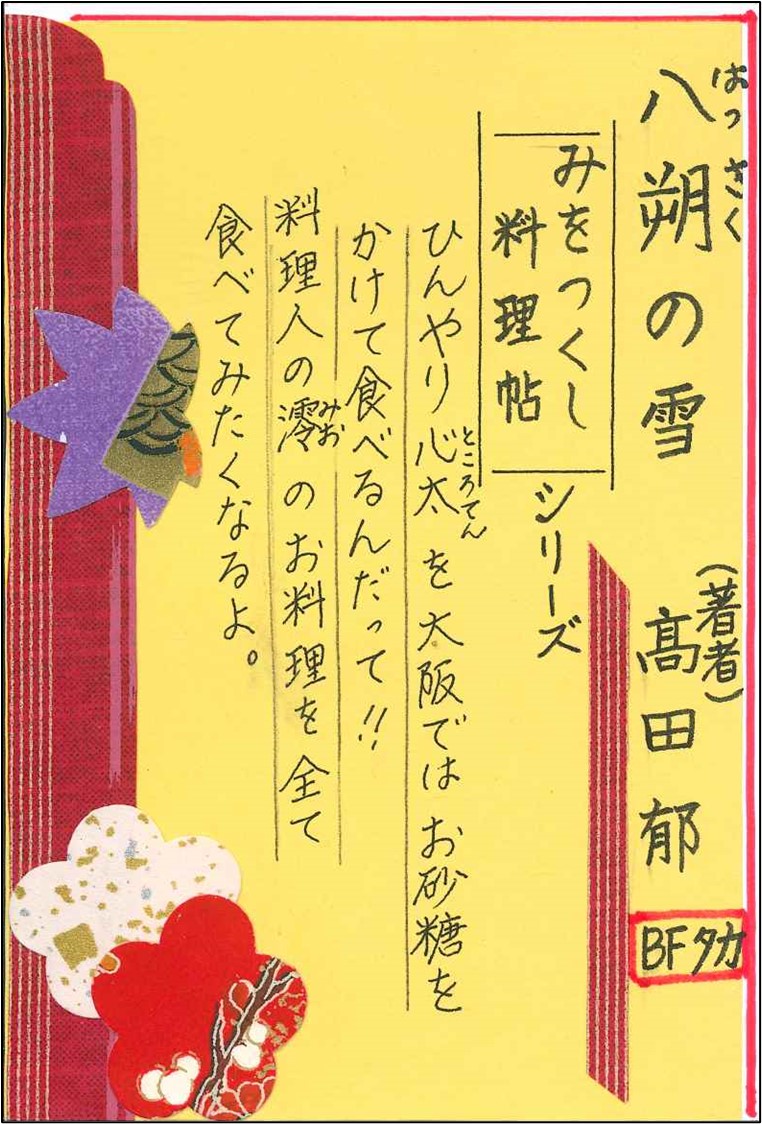 八朔の雪
はっさく
(著者)
髙田郁
BFタカ
みをつくし
料理帖
シリーズ
ひんやり心太を大阪ではお砂糖を
ところてん
かけて食べるんだって!!
料理人の澪のお料理を全て
みお
食べてみたくなるよ。